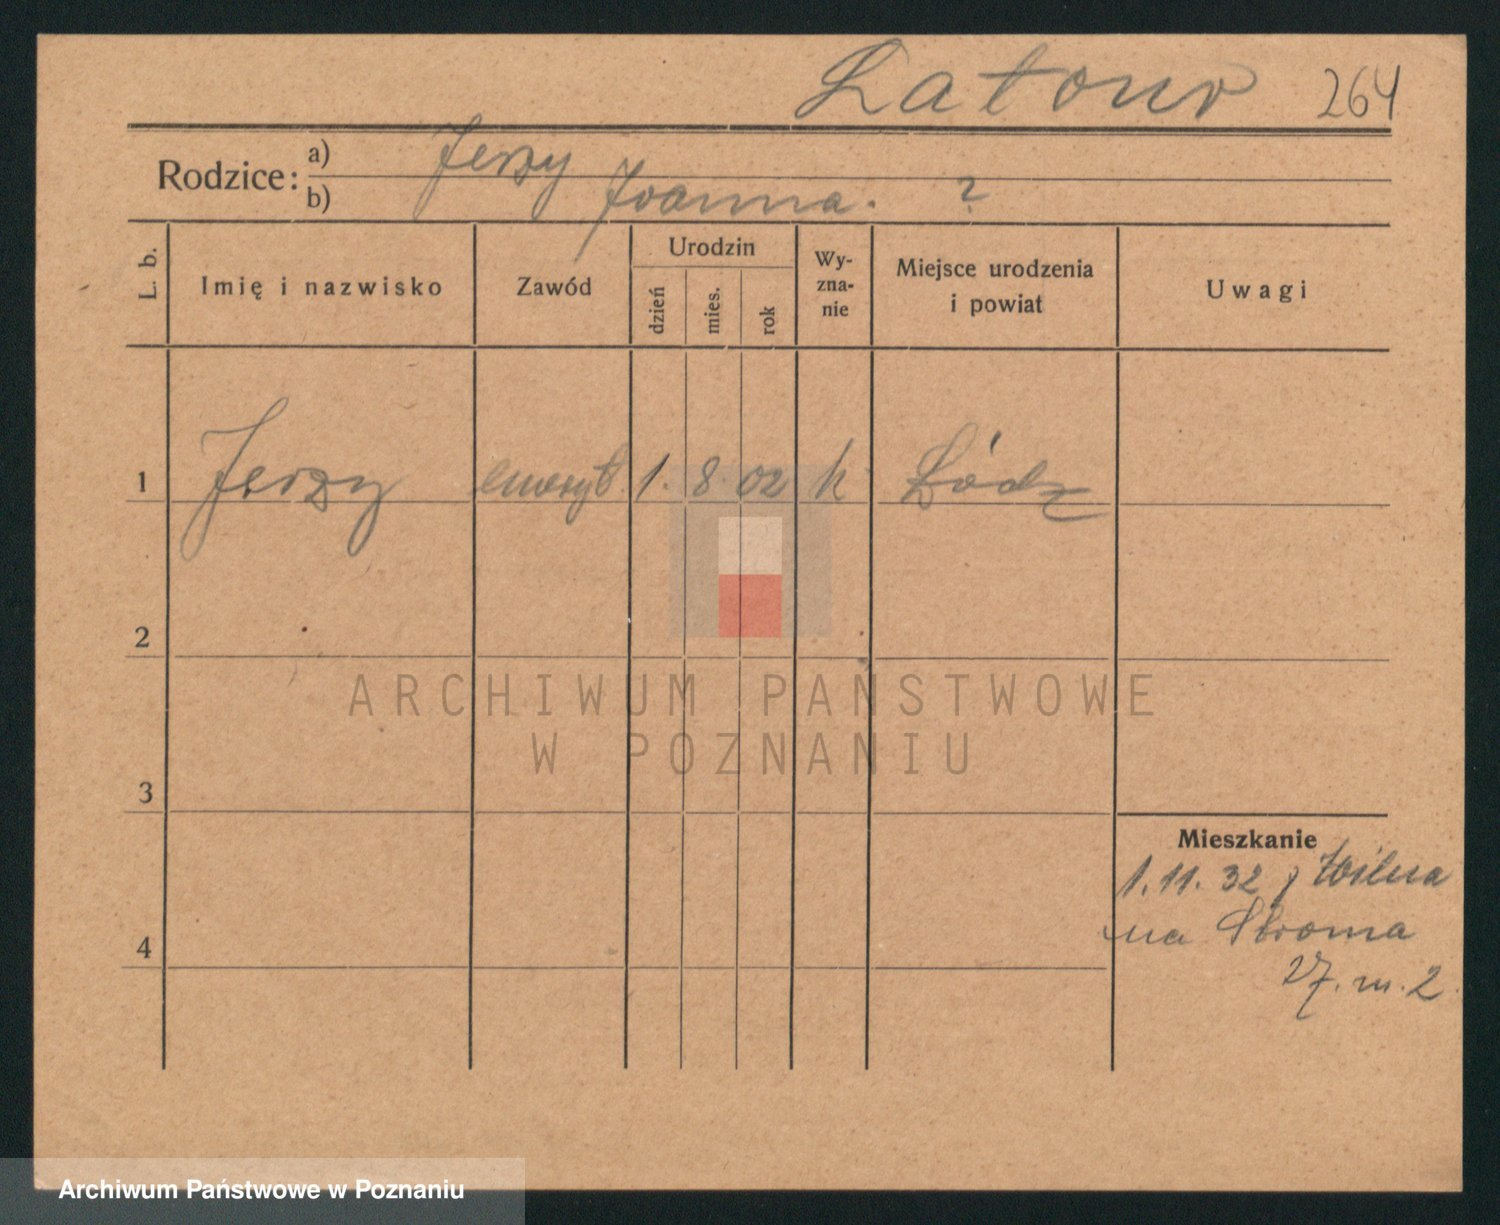 Latour 264
Rodzice: a) Jerzy
b) Joanna. ?
L. b. Imię i nazwisko Zawód Urodzin dzień mies. rok Wy-zna-nie Miejsce urodzenia i powiat Uwagi
1 Jerzy emeryt. 1. 8. 02 k Łódz
2
ARCHIWUM PAŃSTWOWE
W POZNANIU
3
Mieszkanie
1.11.32 z Wilna
na Stroma
4
27. m. 2.
Archiwum Państwowe w Poznaniu